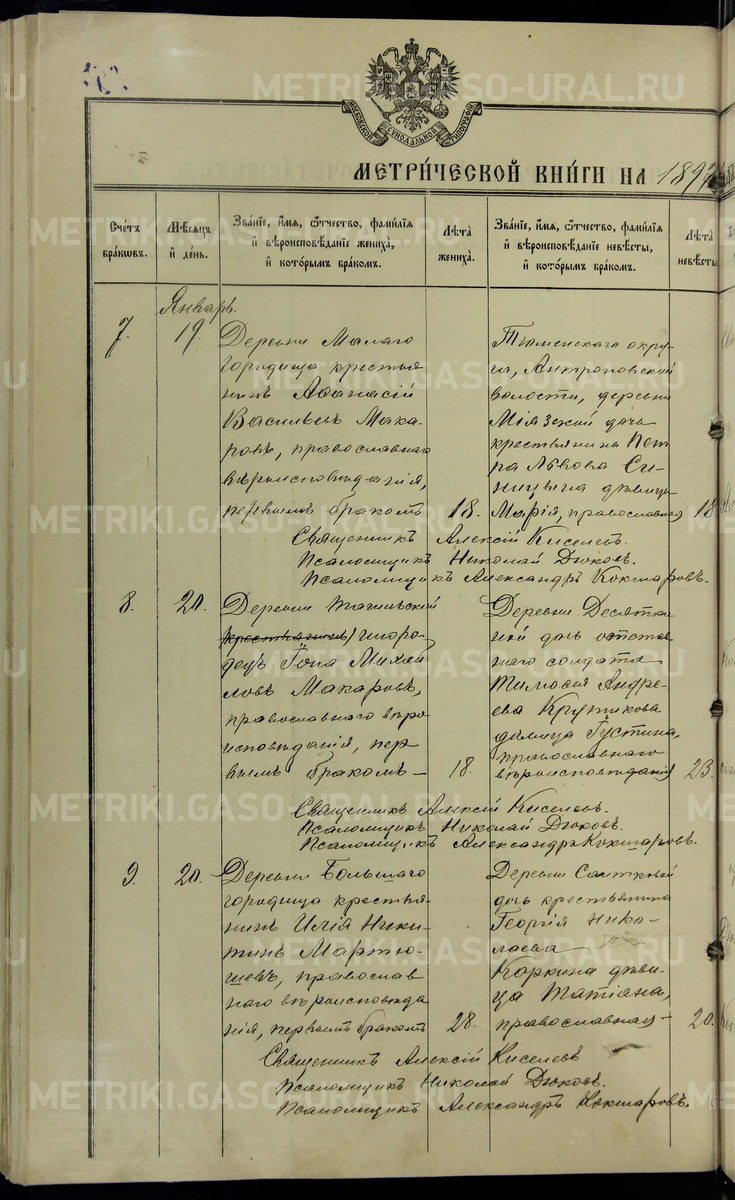 МОСКОВСКОЙ СѴНОДАЛЬНОЙ ТИПОГРАФІИ
МЕТРИ́ЧЕСКОЙ КНИ́ГИ НА 189
Сче́тъ бра́кωвъ.
Мѣ́сяцъ и҆ де́нь.
Зва́нїе, и҆́мя, ѻ҆́тчество, фами́лїя и҆ вѣроисповѣ́данїе жениха̀, и҆ кото́рымъ бра́комъ.
Лѣ́та жениха̀.
Зва́нїе, и҆́мя, ѻ҆́тчество, фами́лїя и҆ вѣроисповѣ́данїе невѣ́сты, и҆ кото́рымъ бра́комъ.
Лѣ́та невѣ́сты
Январь.
7.
19.
Деревни Малаго
Городища крестья
нинъ Аѳанасій
Васильевъ Мака
ровъ, православнаго
вѣроисповѣданія,
первымъ бракомъ
18.
Тюменскаго окру
га, Антроповской
волости, деревни
дочь
крестьянина Пет
ра Львова Си
ницына дѣвица
Марія, православная
18
Священникъ Алексій Киселевъ.
Псаломщикъ Николай Дюковъ.
Псаломщикъ Александръ Кокшаровъ.
8.
20.
Деревни
(крестьянинъ) иноро
децъ Іона Михай
ловъ Макаровъ,
православнаго вѣро
исповѣданія, пер
вымъ бракомъ —
18.
Деревни Десятки
ной дочь отстав
наго солдата
Тимоѳея Андре
ева Крутикова
дѣвица Іустина,
православнаго
вѣроисповѣданія
23.
Священникъ Алексій Киселевъ.
Псаломщикъ Николай Дюковъ.
Псаломщикъ Александръ Кокшаровъ.
9.
20.
Деревни Большаго
городища крестья
нинъ Илія Ники
тинъ Мартю
шевъ, православ
наго вѣроисповѣда
нія, первымъ бракомъ
28.
Деревни
дочь крестьянина
Георгія Нико
лаева
Коркина дѣви
ца Татіана,
православная —
20.
Священникъ Алексій Киселевъ
Псаломщикъ Николай Дюковъ.
Псаломщикъ Александръ Кокшаровъ.
METRIKI.GASO-URAL.RU